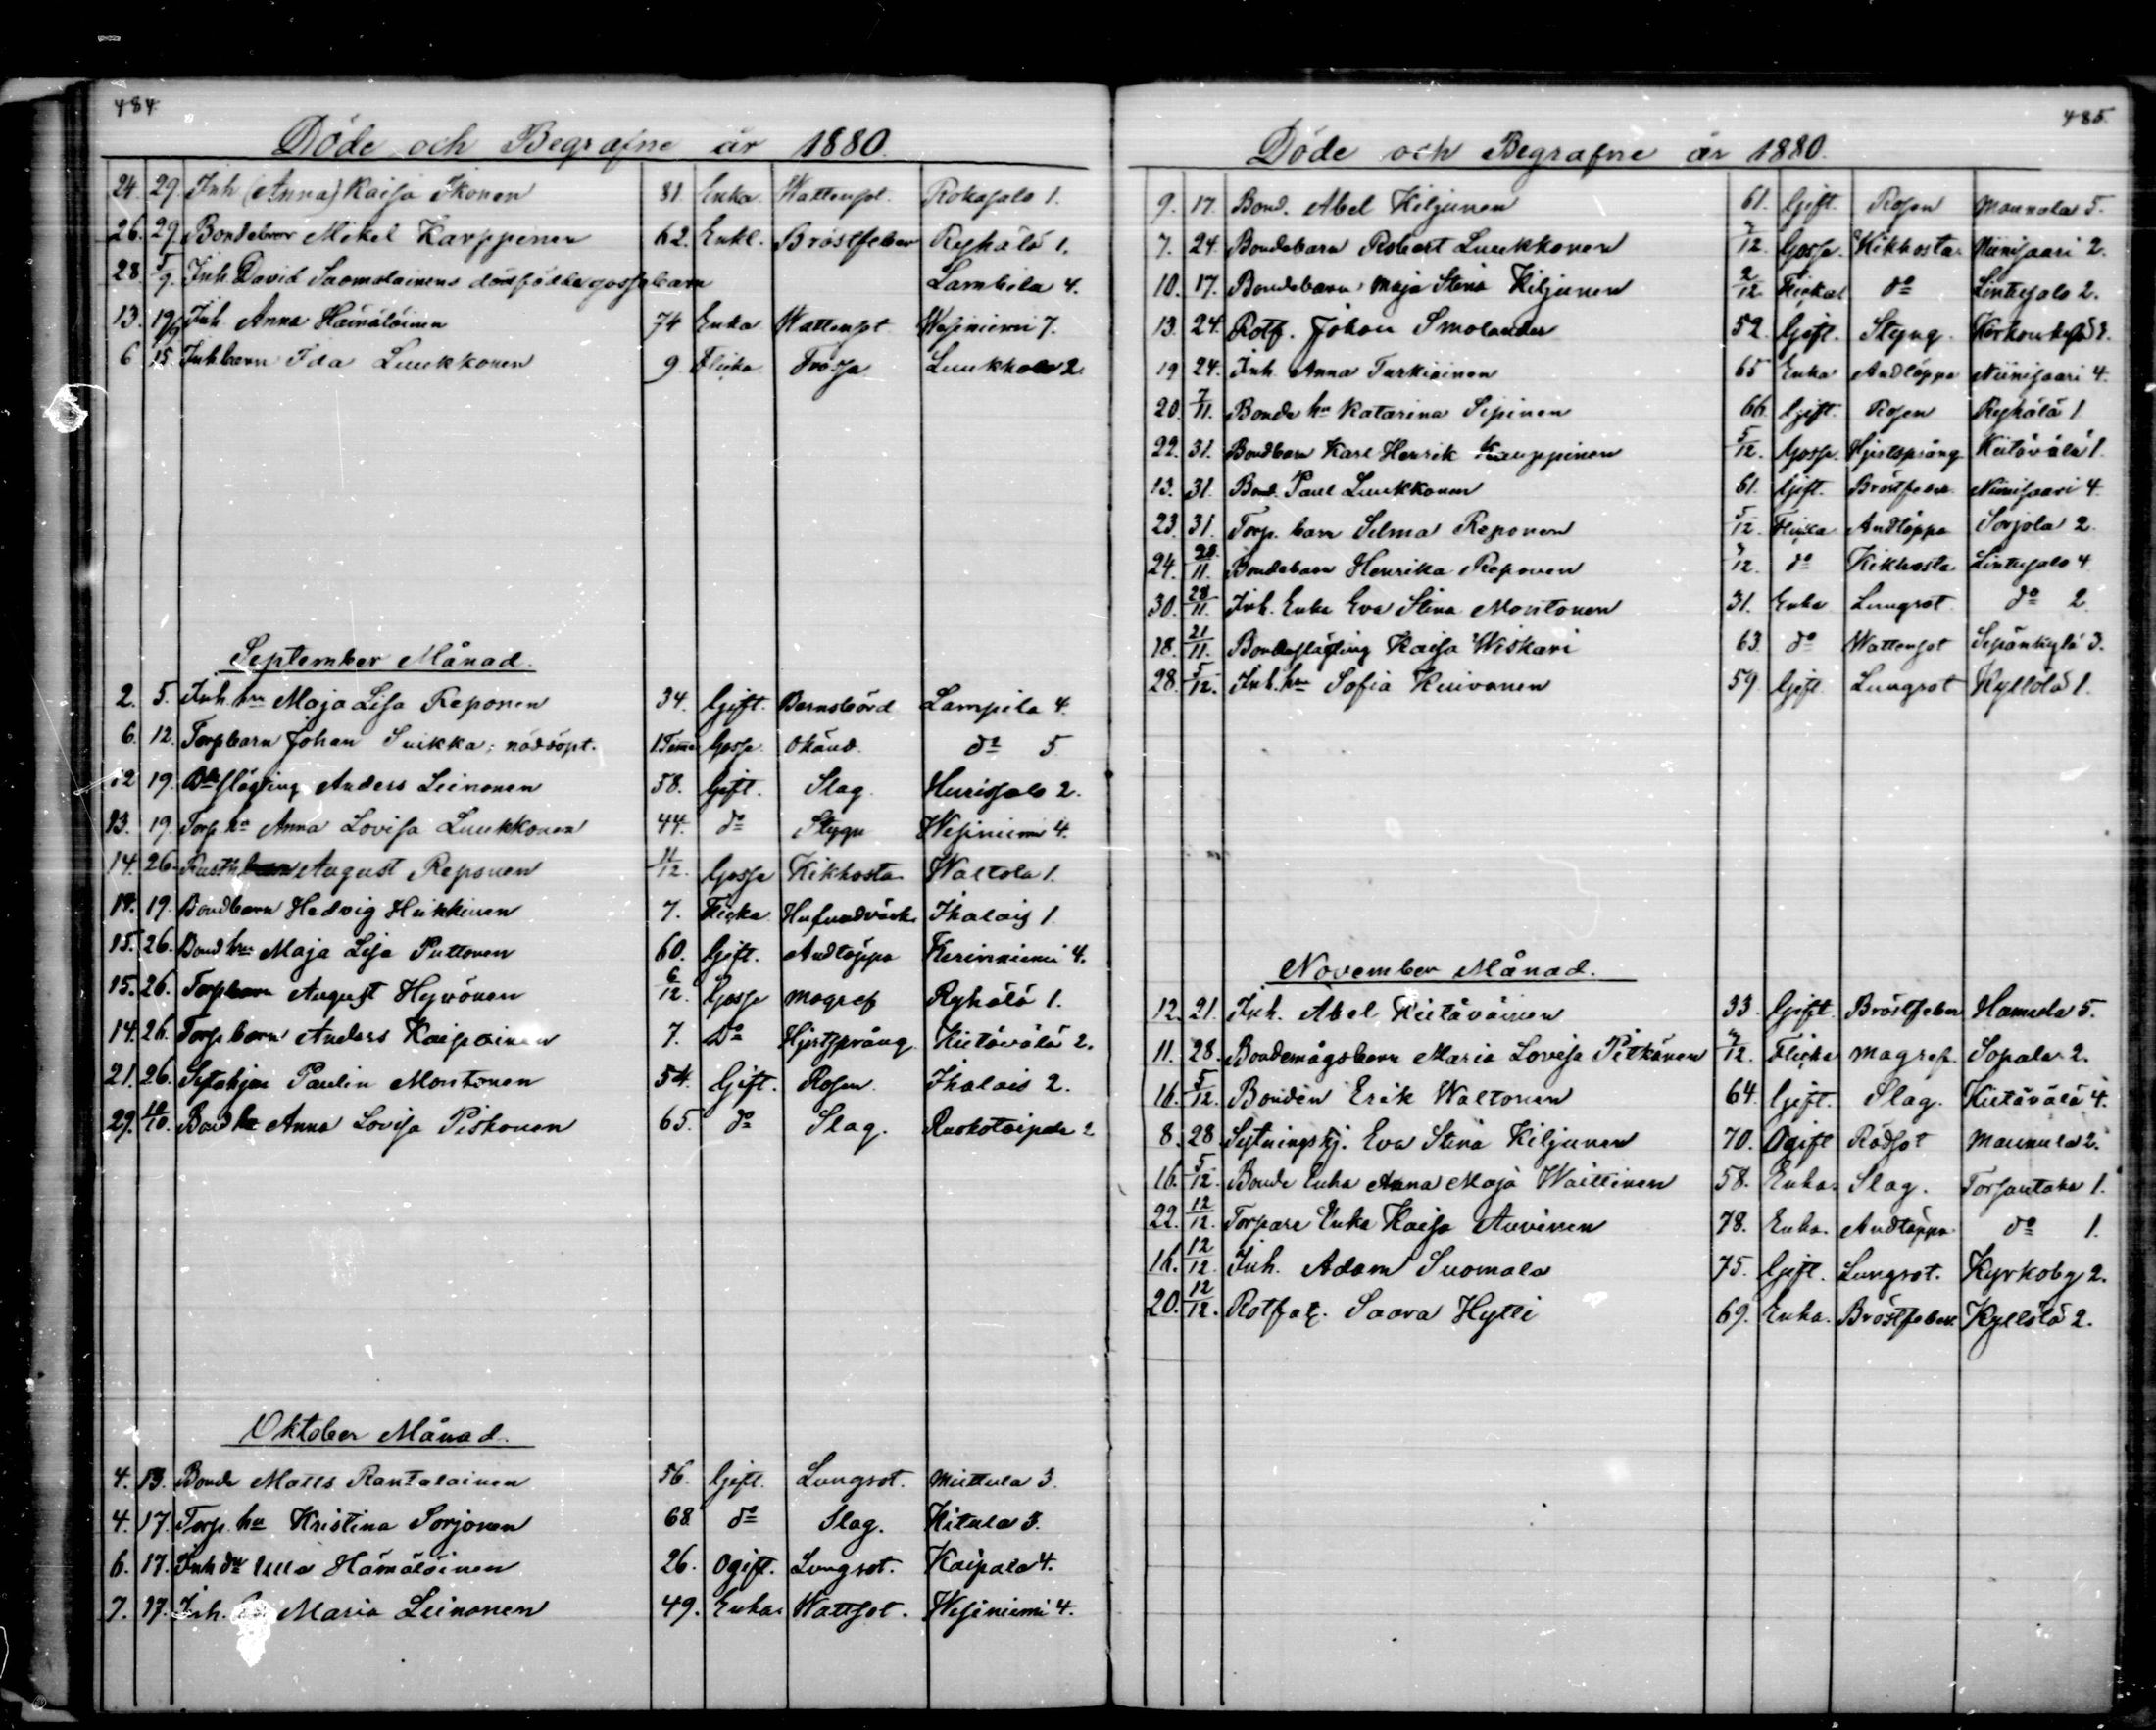 484.
Döde och Begrafne år 1880.
24. 29. Inh (Anna) Kaisa Ikonen 81 Enka Wattensot. Rokasalo 1.
26. 29. Bondebror Mikel Karppinen 62. Enkl. Bröstfeber Ryhälä 1.
28. 5/9. Inh. David Suomalainens dödfödde gossebarn Lambila 4.
13. 19/9 Inh. Anna Hämäläinen 74 Enka Wattensot Wesiniemi 7.
6 15. Inh barn Ida Luukkonen 9. Flicka Frossa Luukkola 2.
September Månad.
2. 5. Inh. hu Maja Lisa Reponen 34. Gift. Barnsbörd Lampila 4.
6. 12. Torpbarn Johan Suikka, nöddöpt. 1 Timme Gosse okänd. do 5
12 19. Bdeslägting Anders Leinonen 58. Gift. Slag. Hurissalo 2.
13. 19. Torp hu Anna Lovisa Luukkonen 44. do Stygn Wesiniemi 4.
14. 26. August Reponen 11/12. Gosse Kikhosta Waltola 1.
14. 19. Bondbarn Hedvig Heikkinen 7. Flicka Hufvudvärk Ihalais 1.
15. 26. Bond hu Maja Lisa Puttonen 60. Gift. Andtäppa Kerinniemi 4.
15. 26. Torpbarn August Hyvönen 6/12. Gosse magref Ryhälä 1.
14. 26. Torp barn Anders Kaipainen 7. Do Hjertsprång Kietävälä 2.
21. 26. Paulin Montonen 54. Gift. Rosen. Ihalais 2.
29. 10/10. Bond hu Anna Lovisa Piskonen 65. do Slag. Ruokotaipale 2
Oktober Månad.
4. 13. Bonde Matts Rantalainen 56. Gift. Lungsot. Miettula 3.
4. 17. Torp. hu Kristina Sorjonen 68. do Slag. Kitula 3.
6. 17. Inh dr Ulla Hämäläinen 26. Ogift. Lungsot. Kaipala 4.
7. 17. Inh. Maria Leinonen 49. Enka Wattsot. Wesiniemi 4.
485.
Döde och Begrafne år 1880.
9. 17. Bond. Abel Kiljunen 61. Gift. Rosen Maunola 5.
7. 24. Bondebarn Robert Luukkonen 7/12. Gosse. Kikhosta Niinisaari 2.
10. 17. Bondebarn Maja Stina Kiljunen 2/12 Flicka do Lintusalo 2.
13. 24. Rotf. Johan Smolander 52. Gift. Styng.
19 24. Inh. Anna Turkiainen 65 Enka Andtäppa Niinisaari 4.
20. 7/11. Bonde hu Katarina Sipinen 66. Gift. Rosen Ryhälä 1
22. 31. Bondbarn Karl Henrik Kauppinen 5/12. Gosse. Hjertsprång Kietävälä 1.
13. 31. Bond. Paul Luukkonen 61. Gift. Bröstfeber Niinisaari 4.
23. 31. Torp. barn Selma Reponen 5/12. Flicka Andtäppa Sorjola 2.
24. 28/11. Bondebarn Henrika Reponen 7/12. do Kikhosta Lintusalo 4
30. 28/11. Inh. Enka Eva Stina Montonen 31. Enka Lungsot do 2.
18. 21/11. Bondeslägting Kaisa Wiskari 63. do Wattensot Sepänkylä 3.
28. 5/12. Inh. hu Sofia Kuivanen 59. Gift Lungsot Kyllölä 1.
November Månad.
12. 21. Inh. Abel Kietäväinen 33. Gift. Bröstfeber Hamula 5.
11. 28. Bondemågsbarn Maria Lovisa Pitkänen 7/12. Flicka magref. Sopala 2.
16. 5/12. Bonden Erik Waltonen 64. Gift. Slag. Kietävälä 4.
8. 28. Sytningshj. Eva Stina Kiljunen 70. Ogift Rödsot Maunula 2.
16. 5/12. Bonde Enka Anna Maja Waittinen 58. Enka. Slag. Torsantaka 1.
22. 12/12. Torpare Enka Kaisa Auvinen 78. Enka. Andtäppa do 1.
16. 12/12. Inh. Adam Suomala 75. Gift. Lungsot. Kyrkoby 2.
20. 12/12. Rotfat. Saara Hytti 69. Enka. Bröstfeber Kyllölä 2.